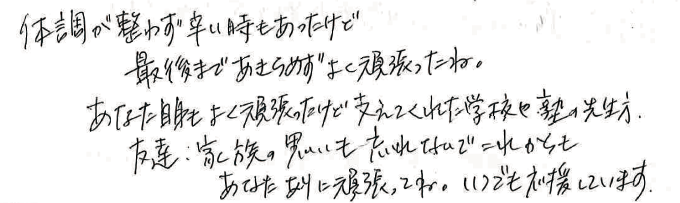 体調が整わず辛い時もあったけど
最後まであきらめずよく頑張ったね。
あなた自身もよく頑張ったけど支えてくれた学校や塾の先生方、
友達・家族の思いも忘れないでこれからも
あなたなりに頑張ってね。いつでも応援しています。